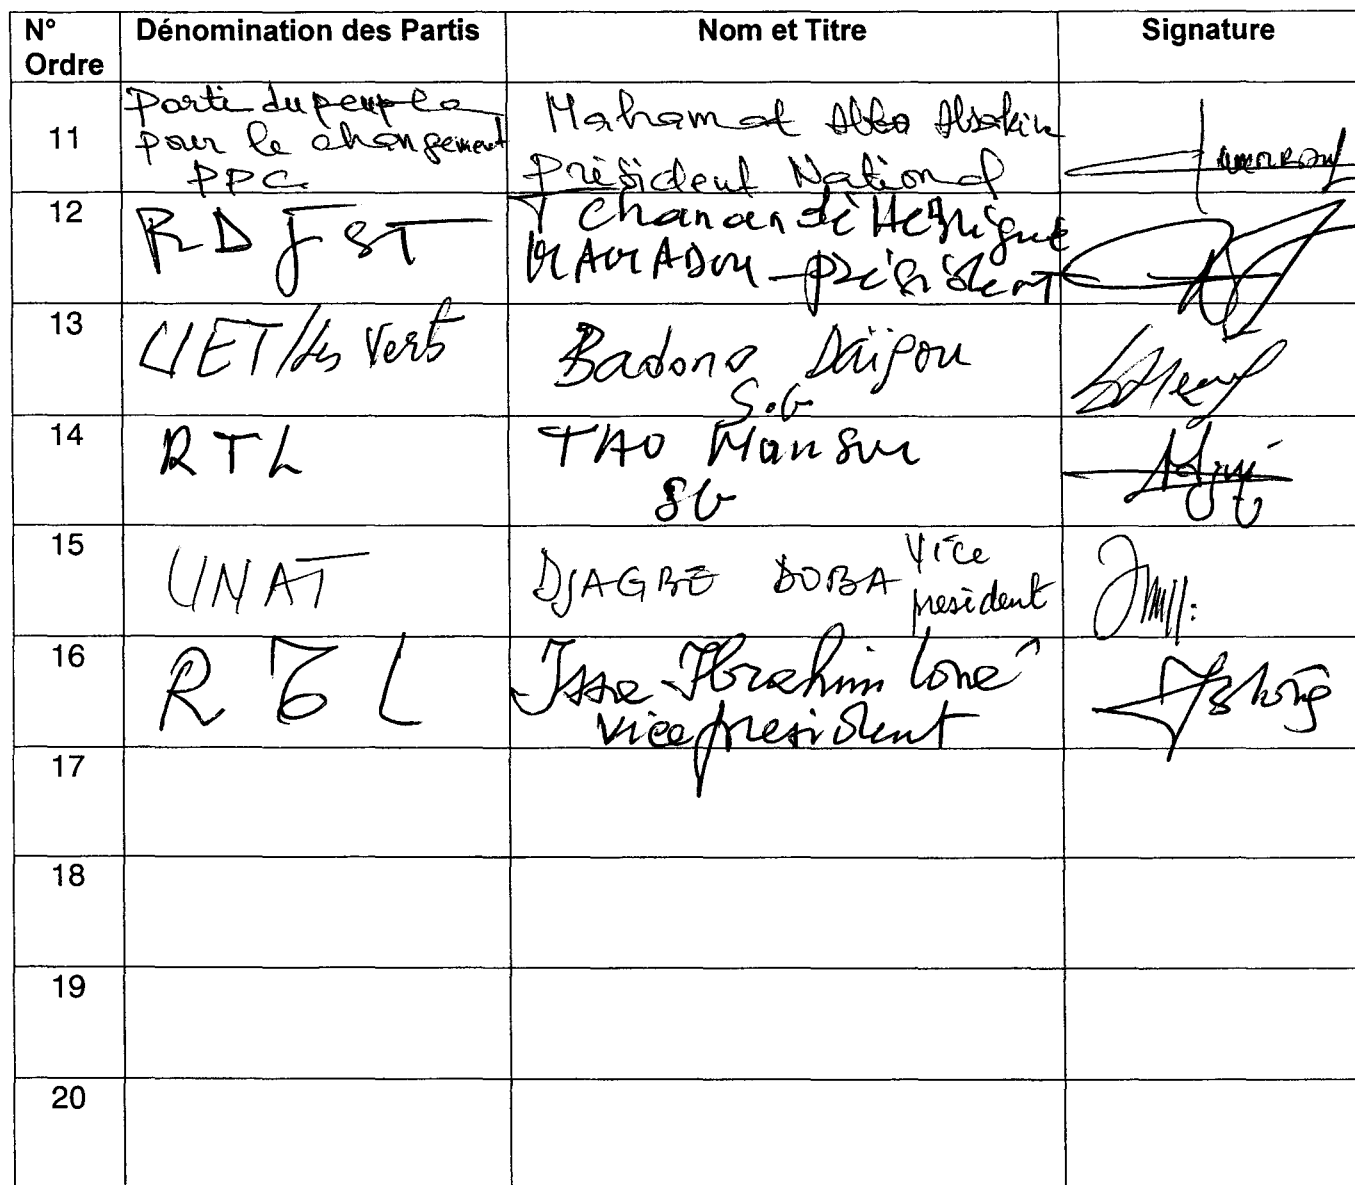 N° Ordre Dénomination des Partis Nom et Titre Signature
11 Parti du peuple pour le changement PPC Mahamat Abba Abakir Président National
12 RDJST Tchanandé Hésigué MAMADOU - président
13 UET/les Verts Badono Daïgou S.G
14 RTL TAO Mansur SG
15 UNAT DJAGBE DOBA vice president
16 R L Issa Ibrahim Loné vice president
17
18
19
20